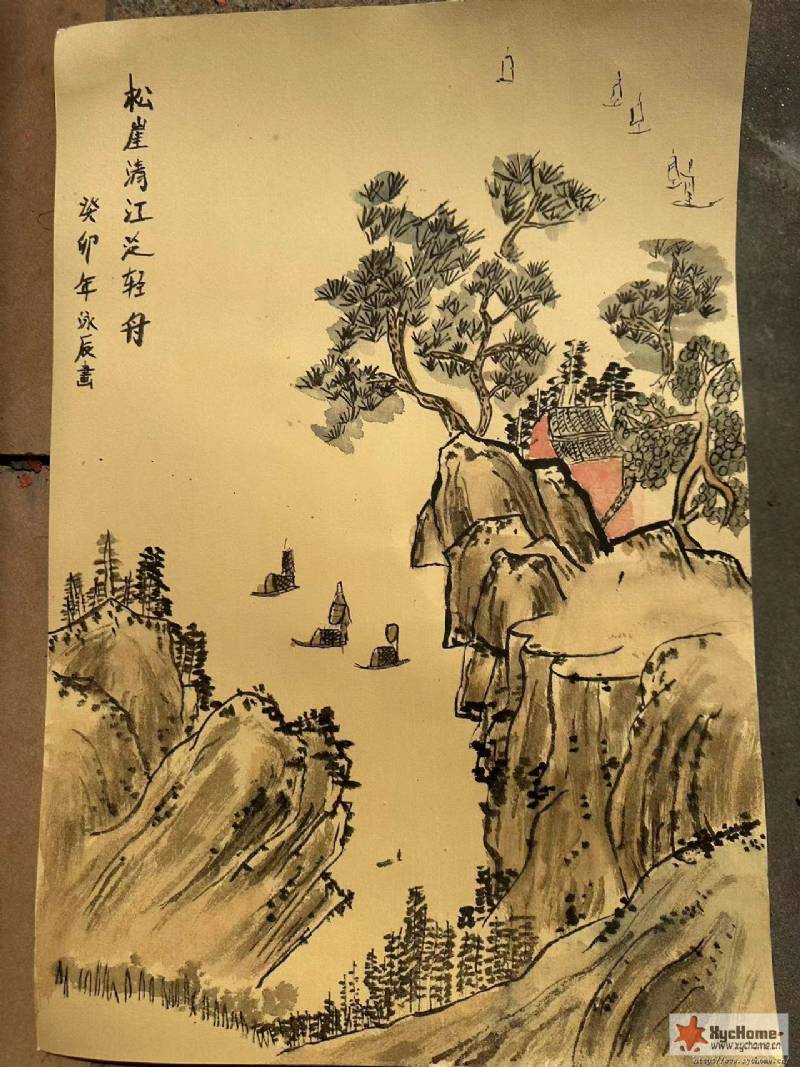 松崖清江泛轻舟
癸卯年泳辰画
XycHome
www.xychome.cn